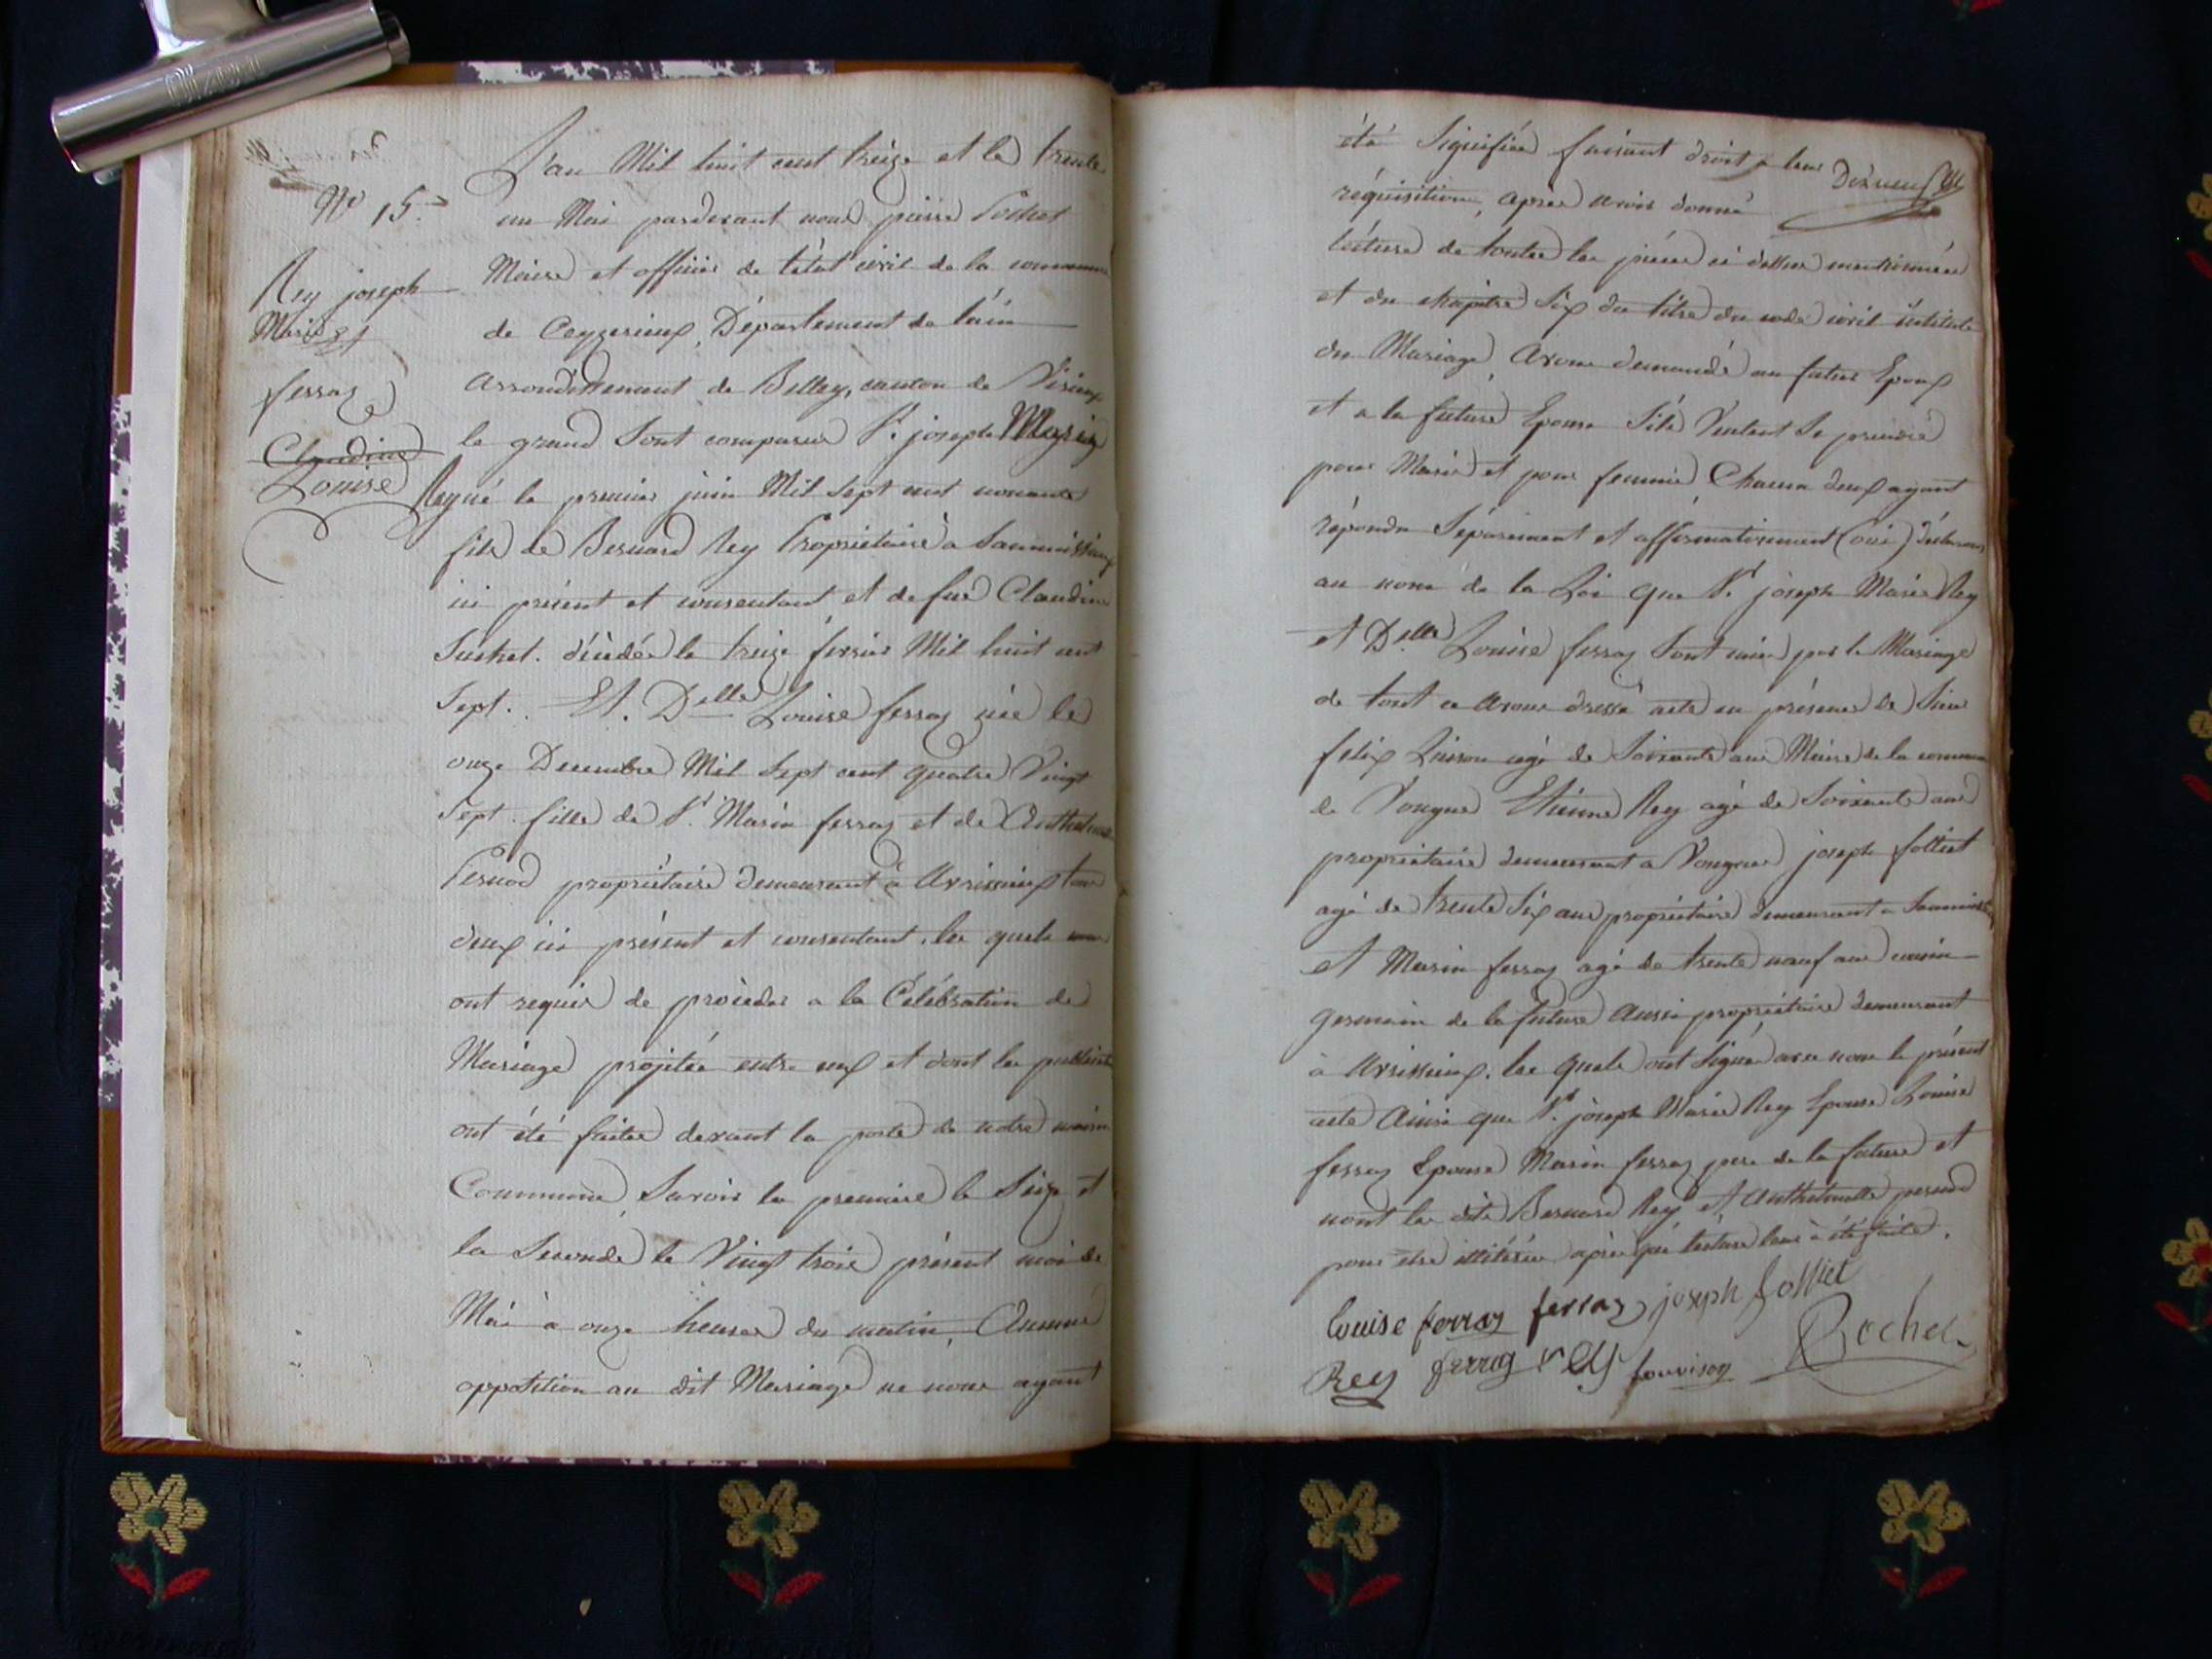 N° 15.
Rey joseph
Marie et
ferraz
Claudine
Louise
L'an Mil huit cent treize et le trente
un Mai pardevant nous pierre Rochet
Maire et officier de l'état civil de la commune
de Ceyzerieux, Département de l'ain
arrondissement de Belley, canton de Virieux
le grand Sont comparus Sr. joseph Marie
Rey né le premier juin Mil Sept cent nonante
fils de Bernard Rey Propriétaire a
ici présent et consentant et de fue Claudine
Suchet. décédée le treize fevrier Mil huit cent
Sept. Et. Delle Louise ferraz née le
onze Decembre Mil Sept cent quatre Vingt
Sept. fille de Sr. Marin ferraz et de Anthelmette
Pernod propriétaire demeurant à Avrissieux tous
deux ici présent et consentant, les quels
ont requis de procéder a la Célébration de
Mariage projetée entre eux et dont les
ont été faites devant la porte de notre maison
Commune, Savoir la premiere le Seize et
la Seconde le Vingt trois présent mois de
Mai à onze heures du matin, Aucune
opposition au dit Mariage ne nous ayant
été Signifiée faisant droit a leur
réquisition, après avoir donné
lecture de toutes les pièces ci dessus mentionnées
et du chapitre Six du titre du code civil intitulé
du Mariage, avons demandé au futur Epoux
et a la future Epouse S'ils Veulent Se prendre
pour Mari et pour femme, Chacun d'eux ayant
répondu Séparément et affirmativement (oui) déclarons
au nom de la Loi que Sr. joseph Marie Rey
et Delle Louise ferraz Sont unis par le Mariage
de tout ce avons dressé acte en présence de Sieur
felix agé de Soixante ans Maire de la commune
de Vongne Etienne Rey agé de Soixante ans
propriétaire demeurant a Vongnes joseph folliet
agé de trente Six ans propriétaire demeurant a
et Marin ferraz agé de trente neuf ans cousin
germain de la future aussi propriétaire demeurant
à Avrissieux, les quels ont Signé avec nous le présent
acte Ainsi que Sr. joseph Marie Rey Epoux Louise
ferraz Epouse Marin ferraz pere de la future et
nont les dits Bernard Rey et Anthelmette pernod
pour être illitérés après que lecture leur à été faite.
louise ferraz ferraz joseph folliet
Rochet
Rey ferraz rey